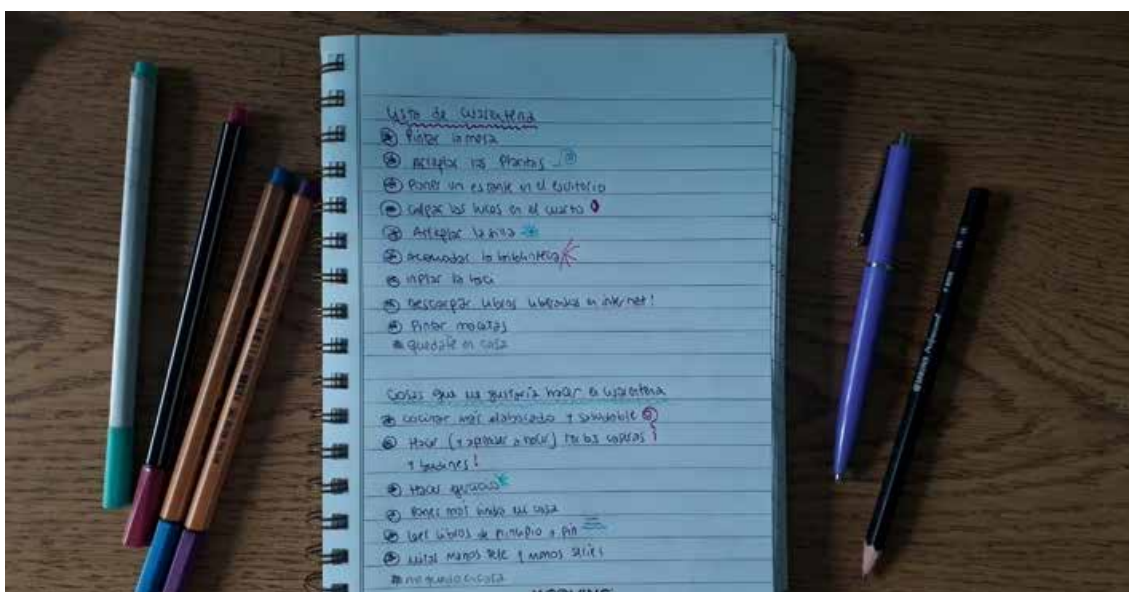 Lista de cuarentena
Pintar la mesa
Arreglar las plantas
Poner un estante en el escritorio
Colgar las luces en el cuarto
Arreglar la silla
Acomodar la biblioteca
la
Descargar libros liberados en internet!
Pintar macetas
# quedate en casa
Cosas que me gustaría hacer en cuarentena
Cocinar más elaborado y saludable
Hacer (y aprender a hacer) tortas caseras
y budines!
Hacer ejercicio
Poner más linda mi casa
Leer libros de principio a fin
Mirar menos tele y menos series
# me quedo en casa